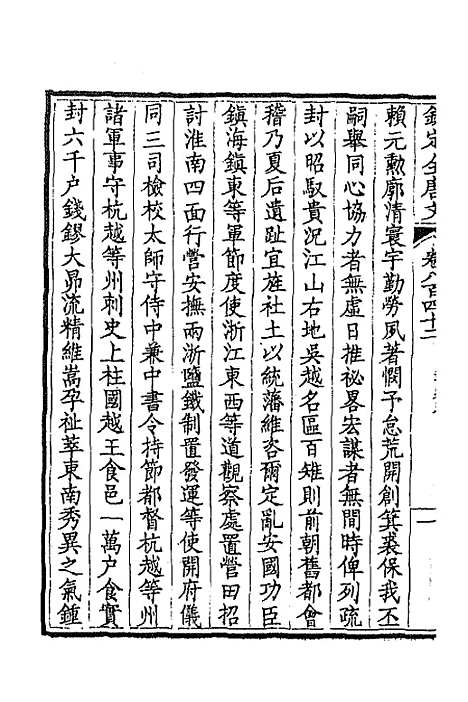 欽定全唐文
卷八百四十二
一
賴元勳廓清寰宇勤勞夙著憫予怠荒開創箕裘保我丕
嗣舉同心協力者無虛日推祕畧宏謀者無間時俾列疏
封以昭馭貴況江山右地吳越名區百雉則前朝舊都會
稽乃夏后遺趾宜旌社土以統藩維咨爾定亂安國功臣
鎮海鎮東等軍節度使浙江東西等道觀察處置營田招
討淮南四面行營安撫兩浙鹽鐵制置發運等使開府儀
同三司檢校太師守侍中兼中書令持節都督杭越等州
諸軍事守杭越等州刺史上柱國越王食邑一萬户食實
封六千户錢鏐大昴流精維嵩孕祉萃東南秀異之氣鍾